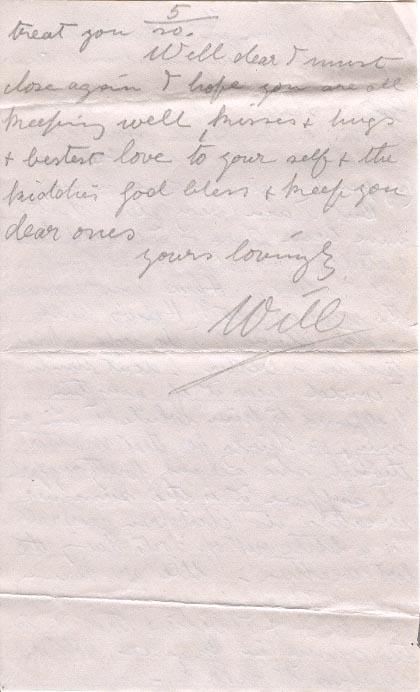 5
treat you so.
Well dear I must
close again I hope you are all
keeping well, kisses & hugs
& bestest love to your self & the
kiddies god bless & keep you
dear ones
yours lovingly
Will